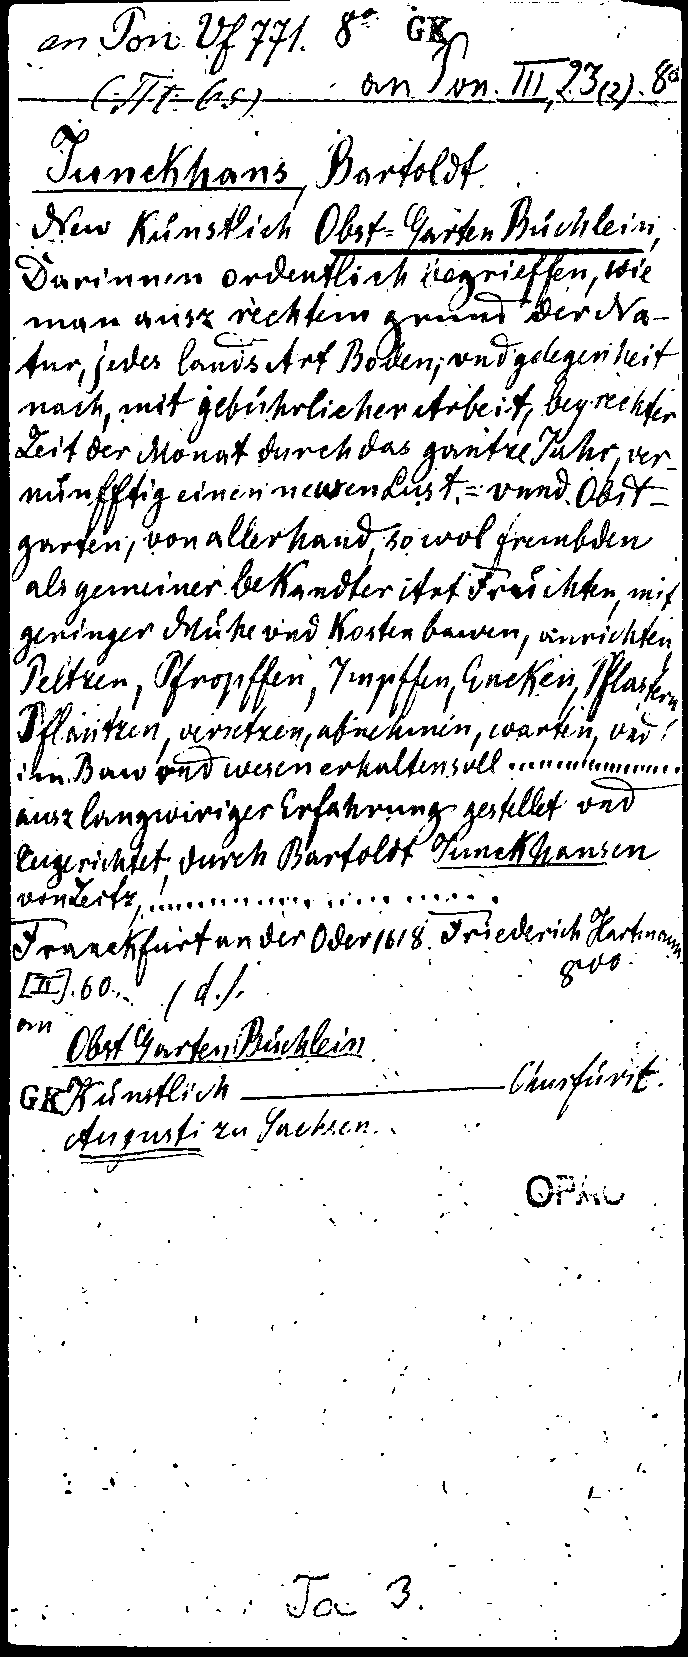 an Pon Vf 771. 8° GK
(III 65) an Pon. III, 23(2). 8°
Junckhans, Bartoldt.
New Künstlich Obst=Garten Büchlein,
Darinnen ordentlich begrieffen, wie
man ausz rechtem grund der Na-
tur, jedes lands Art Boden, vnd gelegenheit
nach, mit gebührlicher Arbeit, bey rechter
Zeit der Monat durch das gantze Jahr, ver-
nünfftig einen newen Lust,= vnnd Obst-
garten, von allerhand, so wol frembden
als gemeiner bekandter Art Früchten, mit
geringer Mühe vnd Kosten bawen, anrichten
Peltzen, Pfropffen, Impffen, Pflastern
Pflantzen, versetzen, abnehmen, warten, vnd
im Baw vnd wesen erhalten soll ............
ausz langwiriger Erfahrung gestellet vnd
zugerichtet, durch Bartoldt Junckhansen
von Zeitz, ............
Franckfurt an der Oder 1618. Friederich Hartmann
[III]. 60. (d.). 8°
an
Obst Garten Büchlein
GK Künstlich ——— Chufürst.
Augusti zu Sachsen.
OPAC
Ja 3.